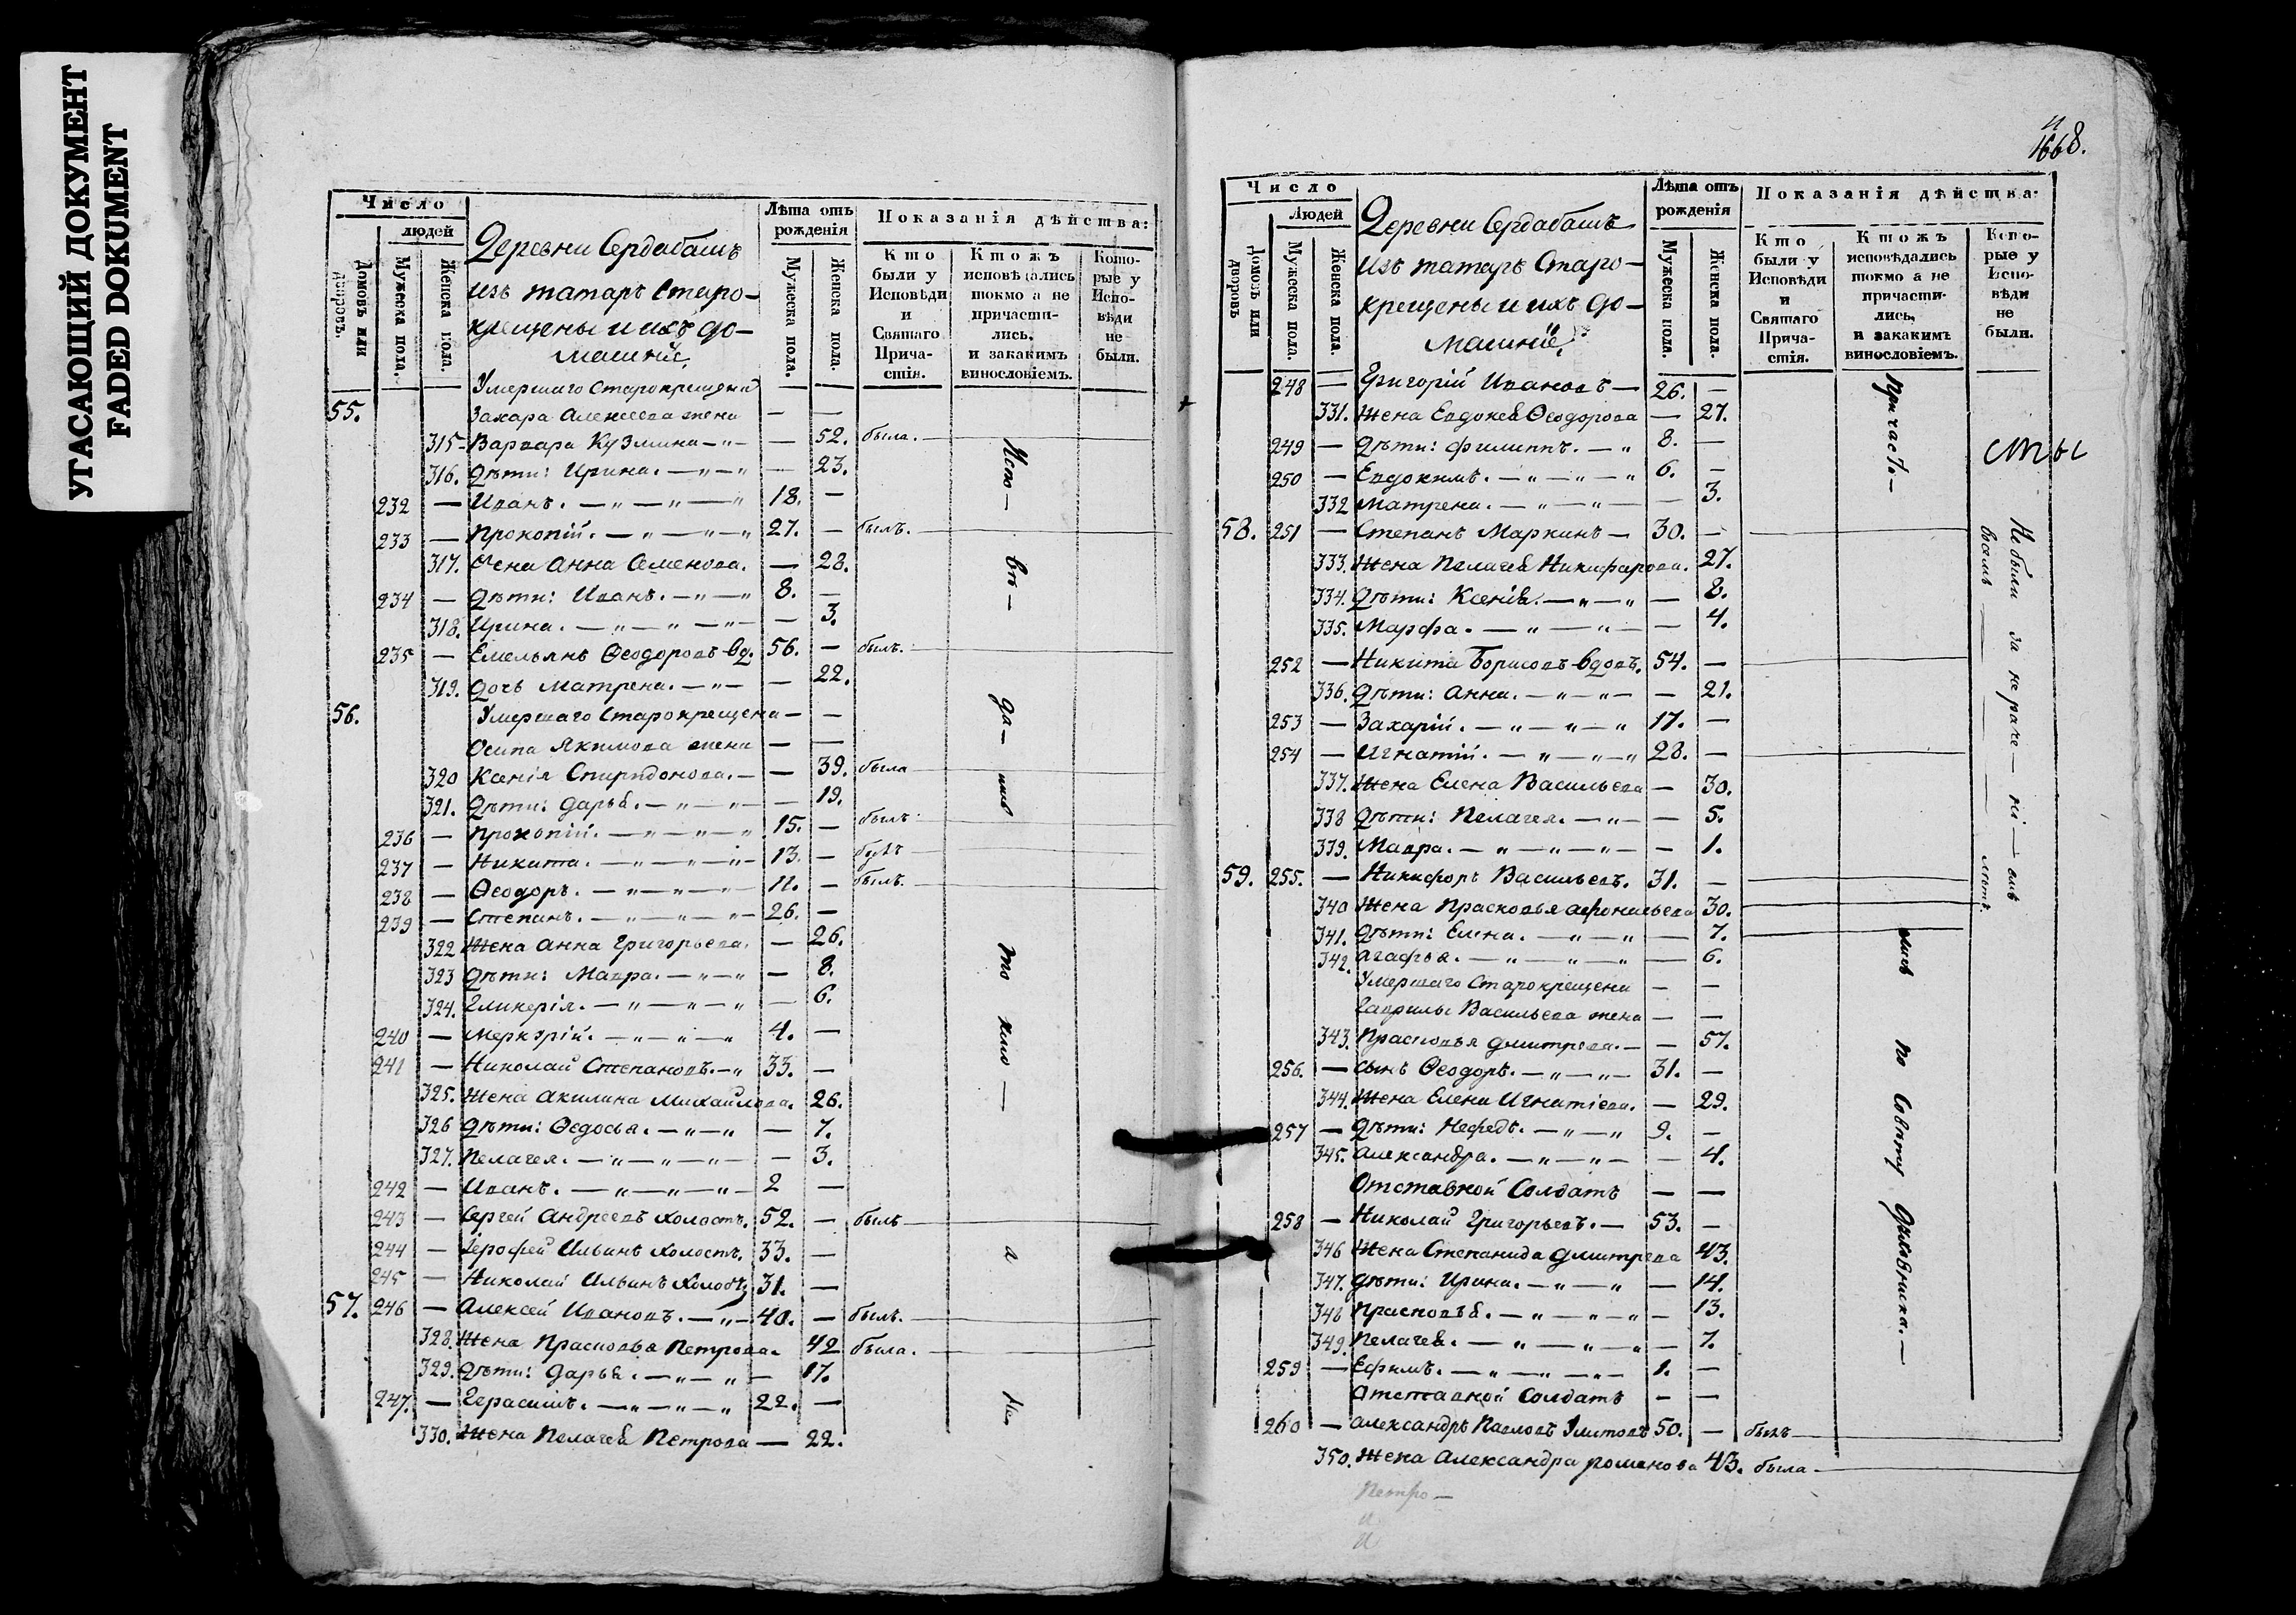 УГАСАЮЩИЙ ДОКУМЕНТ
FADED DOKUMENT
Число
людей
Домовъ или дворовъ.
Мужеска пола.
Женска пола.
Деревни Сердабашъ
изъ татаръ Старо-
крещены и ихъ до-
машніе
Лѣта отъ рожденія
Мужеска пола.
Женска пола.
Показанія дѣйства:
Кто были у Исповѣди и Святаго Причастія.
Ктожъ исповѣдались токмо а не причастились, и закакимъ винословіемъ.
Которые у Исповѣди не были.
55. Умершаго Старокрещена
Захара Алексеева жена — —
315 Варвара Кузмина — 52. была.
316. Дѣти: Ирина. — 23.
232 — Иванъ. — 18. —
233 — Прокопій. — 27. — былъ.
317. Жена Анна Семенова. — 28.
234 — Дѣти: Иванъ. — 8. —
318. Ирина. — 3.
235 — Емельянъ Ѳеодоровъ вд. 56. — былъ.
319. Дочь Матрена. — 22.
56. Умершаго Старокрещена — —
Осипа Якимова жена — —
320 Ксенія Спиридонова. — 39. была
321. Дѣти: Дарья. — 19.
236 — Прокопій. — 15. — былъ
237 — Никита. — 13. — былъ
238 — Ѳеодоръ. — 11. — былъ.
239 — Степанъ. — 26. —
322 Жена Анна Григорьева. — 26.
323 Дѣти: Мавра. — 8.
324. Гликерія. — 6.
240 — Меркурій. — 4. —
241 — Николай Степановъ. — 33. —
325. Жена Акилина Михайлова. 26.
326 Дѣти: Ѳедосья. — 7.
327. Пелагея. — 3.
242 — Иванъ. — 2 —
243 — Сергей Андреевъ холостъ. 52. — былъ
244 — Іерофей Ильинъ холостъ. 33. —
245 — Николай Ильинъ холостъ 31. —
57. 246 — Алексей Ивановъ. — 40. — былъ.
328. Жена Прасковья Петрова. 42 была.
329. Дѣти: Дарья. — 17.
247. — Герасимъ. — 22. —
330. Жена Пелагея Петрова — 22.
Испо — вѣ — да — лись то кмо — а не
1668.
Число
Людей
Домовъ или дворовъ
Мужеска пола.
Женска пола.
Деревни Сердабашъ
Изъ татаръ Старо-
крещены и ихъ до-
машніе
Лѣта отъ рожденія
Мужеска пола.
Женска пола.
Показанія дѣйства:
Кто были у Исповѣди и Святаго Причастія.
Ктожъ исповѣдались токмо а не причастились, и закакимъ винословіемъ.
Которые у Исповѣди не были.
248 — Григорій Ивановъ — 26. —
331. Жена Евдокея Ѳеодорова — 27.
249 — Дѣти: Филиппъ. — 8. —
250 — Евдокимъ. — 6. —
332 Матрена. — 3.
58. 251 — Степанъ Маркинъ — 30. —
333. Жена Пелагея Никифорова. 27.
334. Дѣти: Ксенія. — 8.
335. Марфа. — 4.
252 — Никита Борисовъ вдовъ. 54. —
336. Дѣти: Анна. — 21.
253 — Захарій. — 17. —
254 — Игнатій. — 28. —
337. Жена Елена Васильева — 30.
338 Дѣти: Пелагея. — 5.
339. Мавра. — 1.
59. 255. — Никифоръ Васильевъ. 31. —
340 Жена Прасковья Афонасьева 30.
341. Дѣти: Елена. — 7.
342. Агафья. — 6.
Умершаго Старокрещена — —
Гаврилы Васильева жена — —
343. Прасковья Дмитрева. — 57.
256. — сынъ Ѳеодоръ. — 31. —
344. Жена Елена Игнатіева. — 29.
257 — Дѣти: Нефедъ. — 9. —
345. Александра. — 4.
Отставной Солдатъ — —
258 — Николай Григорьевъ. — 53. —
346 Жена Степанида Дмитрева 43.
347. Дѣти: Ирина. — 14.
348 Прасковья. — 13.
349. Пелагея. — 7.
259 — Ефимъ. — 1. —
Отставной Солдатъ — —
260 — Александръ Павловъ 50. — былъ
350. Жена Александра Романова 43. была
Петро —
Причаст. —
лись по Совѣту Духовника. —
Не были за нераче — ні — емъ